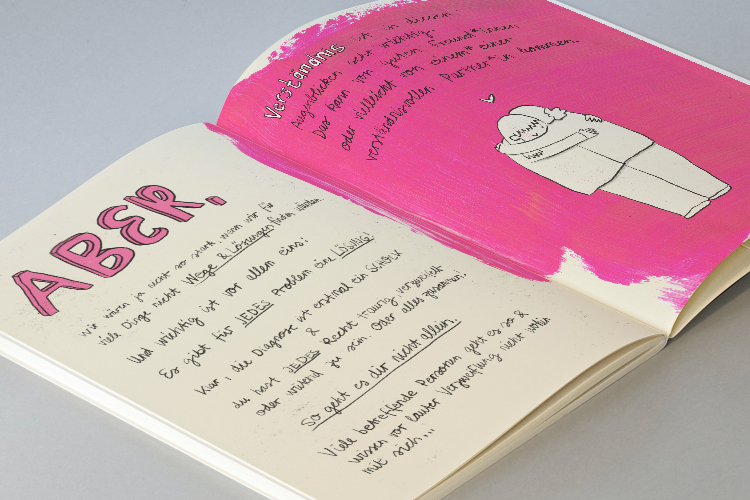 ABER,
wir wären ja nicht so stark, wenn wir für
viele Dinge nicht Wege & Lösungen finden würden.
Und wichtig ist vor allem eins:
Es gibt für JEDES Problem eine LÖSUNG!
Klar, die Diagnose ist erstmal ein SCHOCK
&
du hast JEDES Recht traurig, verzweifelt
oder wütend zu sein. Oder alles zusammen!
So geht es dir nicht allein.
Viele betreffende Personen geht es so &
wissen vor lauter Verzweiflung nicht wohin
mit sich...
Verständnis ist in diesen
Augenblicken sehr wichtig.
Das kann von guten Freund*innen
oder vielleicht von einem* einer
verständnisvollen Partner*in kommen.